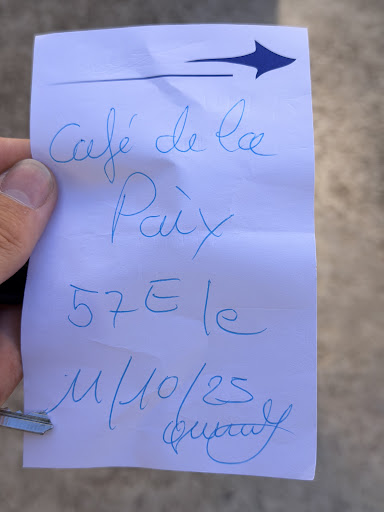 Café de la
Paix
57E le
11/10/25